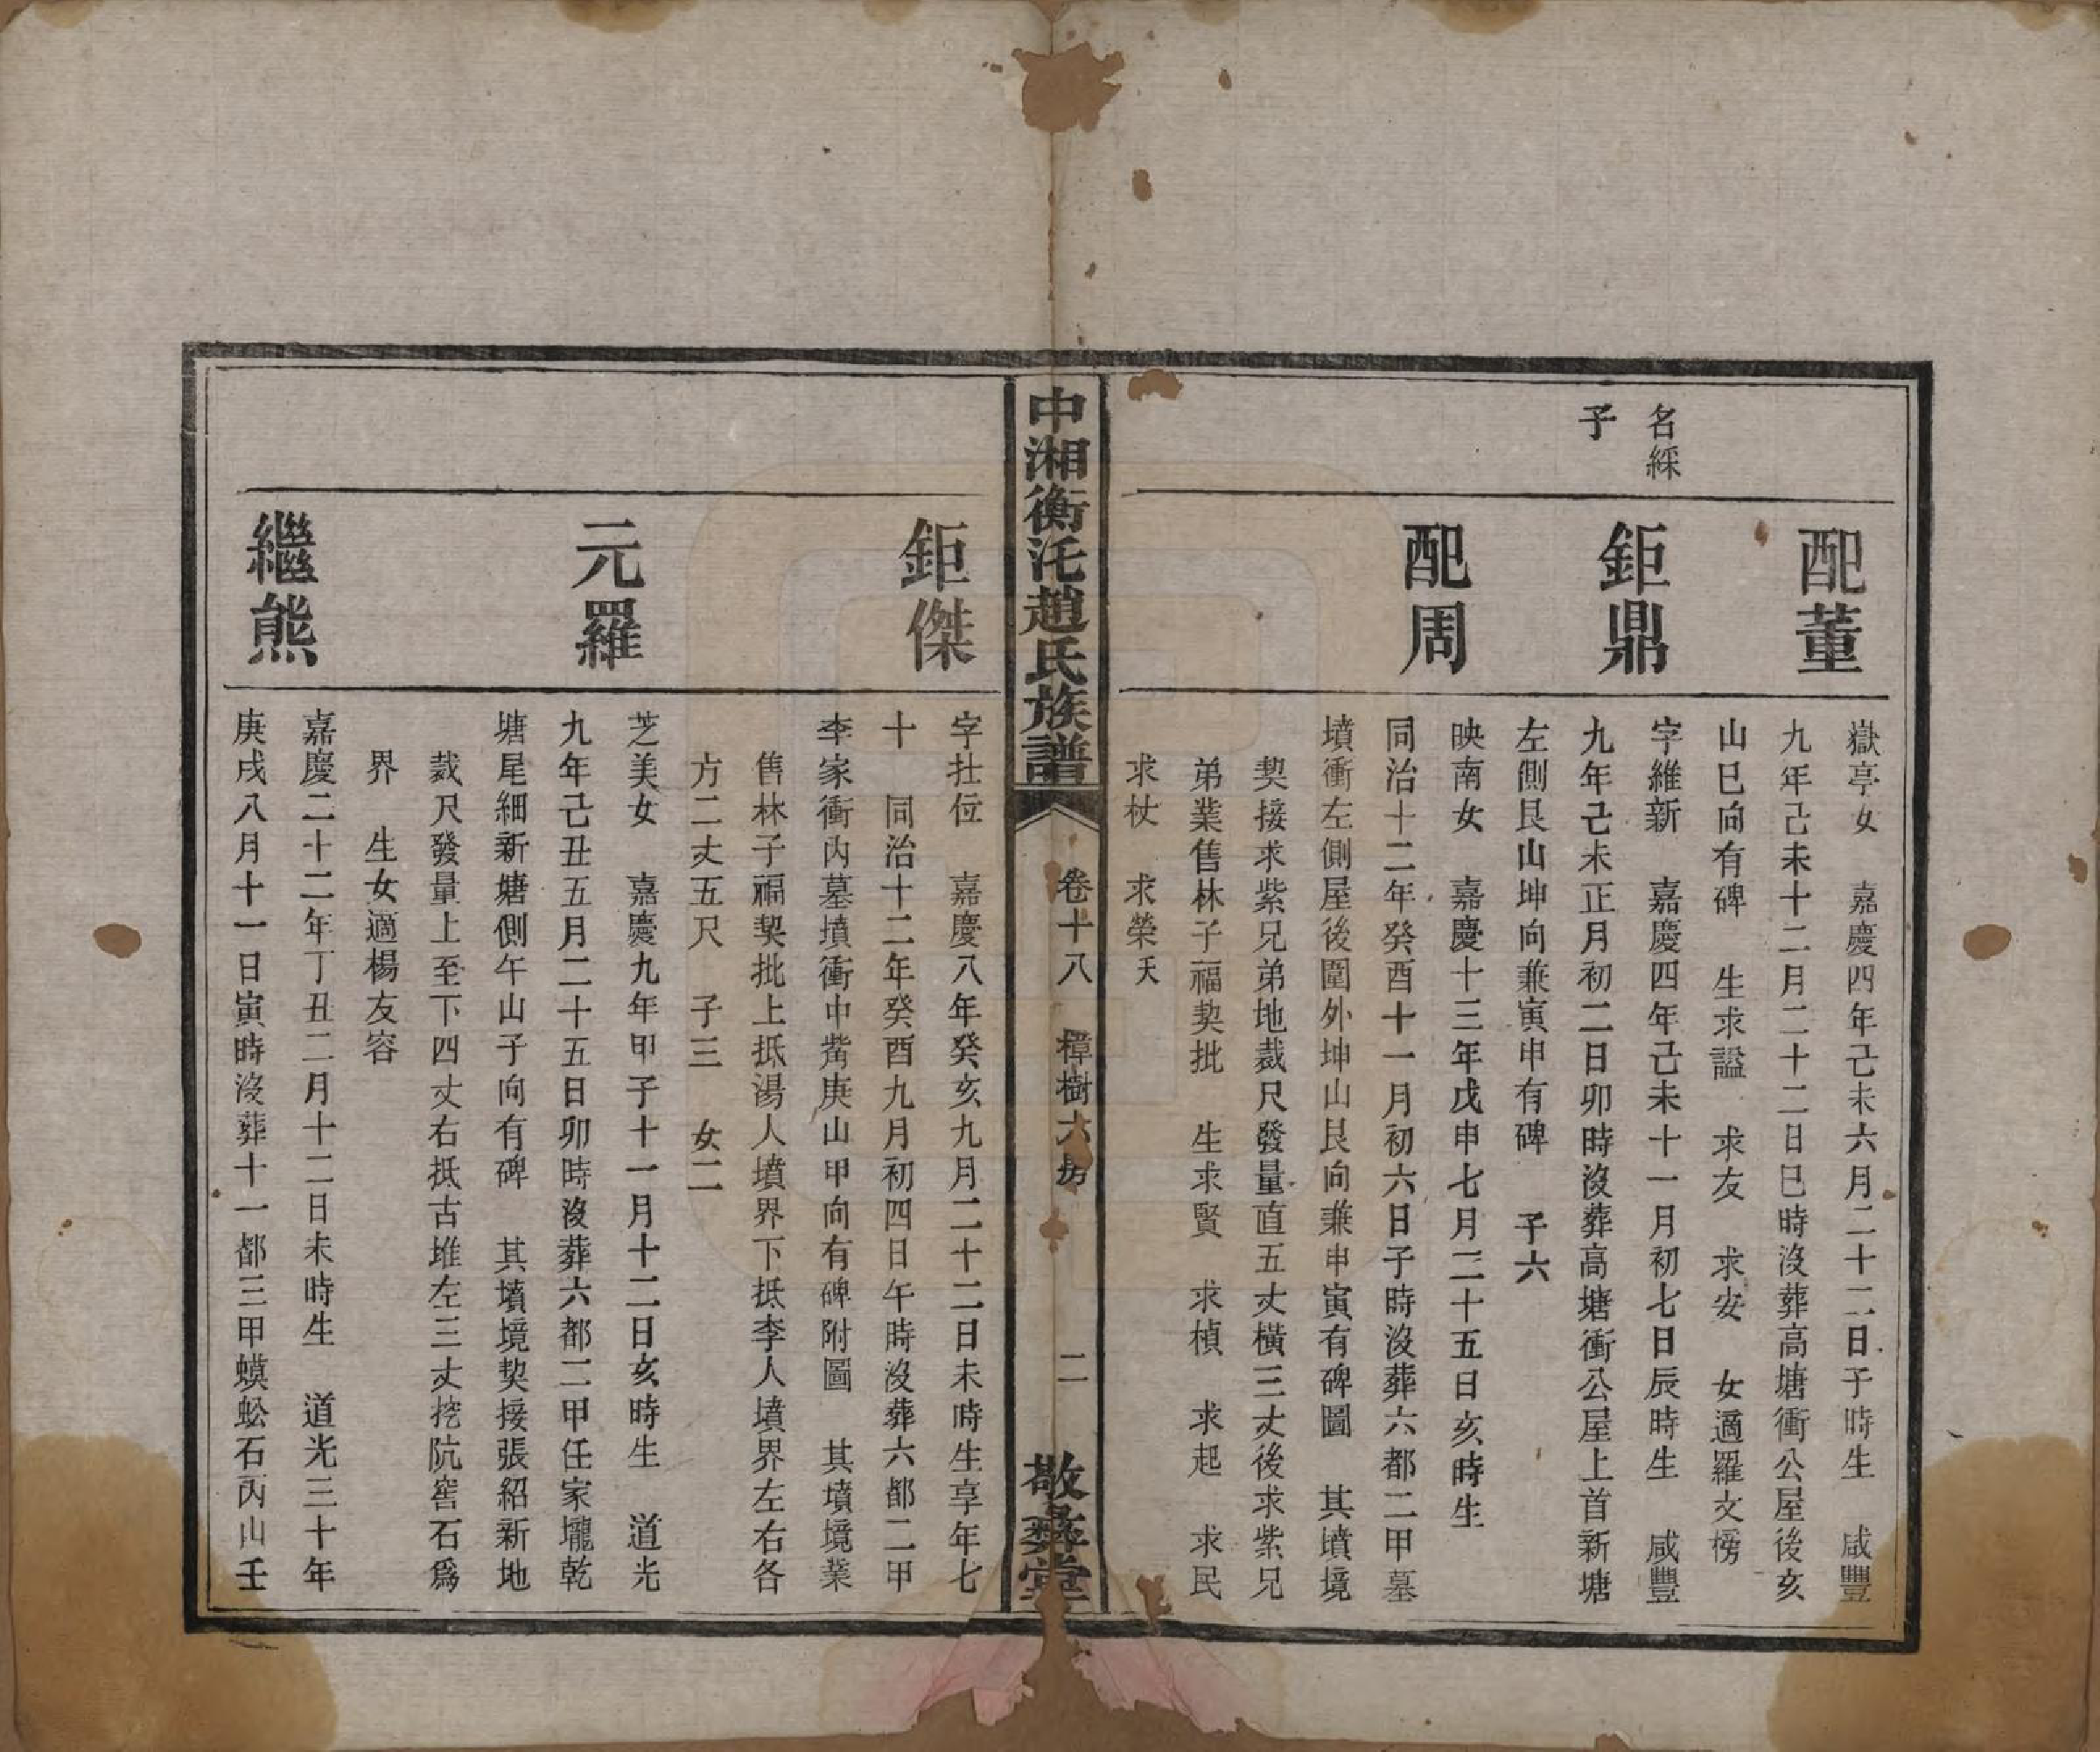 配董
嶽亭女　嘉慶四年己未六月二十二日子時生　咸豐
九年己未十二月二十二日巳時沒葬高塘衝公屋後亥
山巳向有碑　生求謚　求友　求安　女適羅文榜
名綵
子
鉅鼎
字維新　嘉慶四年己未十一月初七日辰時生　咸豐
九年己未正月初二日卯時沒葬高塘衝公屋上首新塘
左側艮山坤向兼寅申有碑　子六
配周
映南女　嘉慶十三年戊申七月二十五日亥時生
同治十二年癸酉十一月初六日子時沒葬六都二甲墓
墳衝左側屋後圍外坤山艮向兼申寅有碑圖　其墳境
契接求紫兄弟地裁尺發量直五丈橫三丈後求紫兄
弟業售林子福契批　生求賢　求楨　求起　求民
求杖　求榮夭
中湘衡汑趙氏族譜　卷十八　樟樹六房　二　敬彝堂
鉅傑
字壯位　嘉慶八年癸亥九月二十二日未時生享年七
十　同治十二年癸酉九月初四日午時沒葬六都二甲
李家衝內墓墳衝中嘴庚山甲向有碑附圖　其墳境業
售林子福契批上抵湯人墳界下抵李人墳界左右各
方二丈五尺　子三　女二
元羅
芝美女　嘉慶九年甲子十一月十二日亥時生　道光
九年己丑五月二十五日卯時沒葬六都二甲任家壠乾
塘尾細新塘側午山子向有碑　其墳境契接張紹新地
裁尺發量上至下四丈右抵古堆左三丈挖阬窖石爲
界　生女適楊友容
繼熊
嘉慶二十二年丁丑二月十二日未時生　道光三十年
庚戌八月十一日寅時沒葬十一都三甲蟆蚣石丙山壬